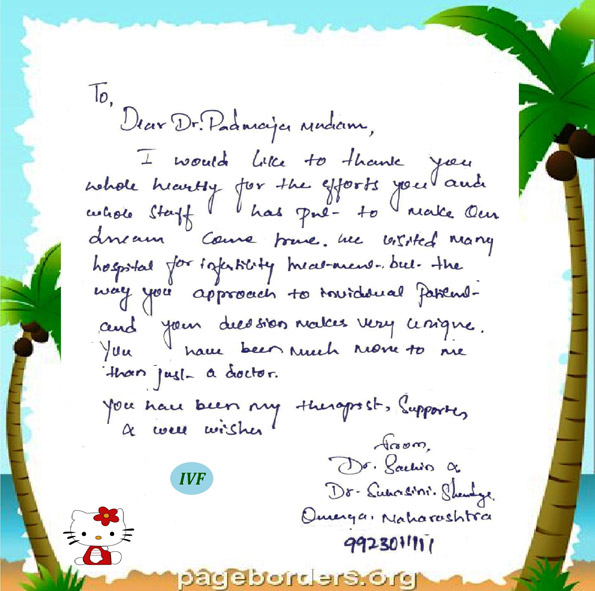 To,
Dear Dr. Padmaja madam,
I would like to thank you
whole heartly for the efforts you and
whole staff has put to make our
dream come true. we visited many
hospital for infertility treatment, but the
way you approach to invidual patient
and your decision makes very unique.
You have been much more to me
than just a doctor.
You have been my therapist, Supporter
& well wisher
from,
Dr. Sachin &
Dr. Suhasini. Shendge
Omerga. Maharashtra
IVF
pageborders.org